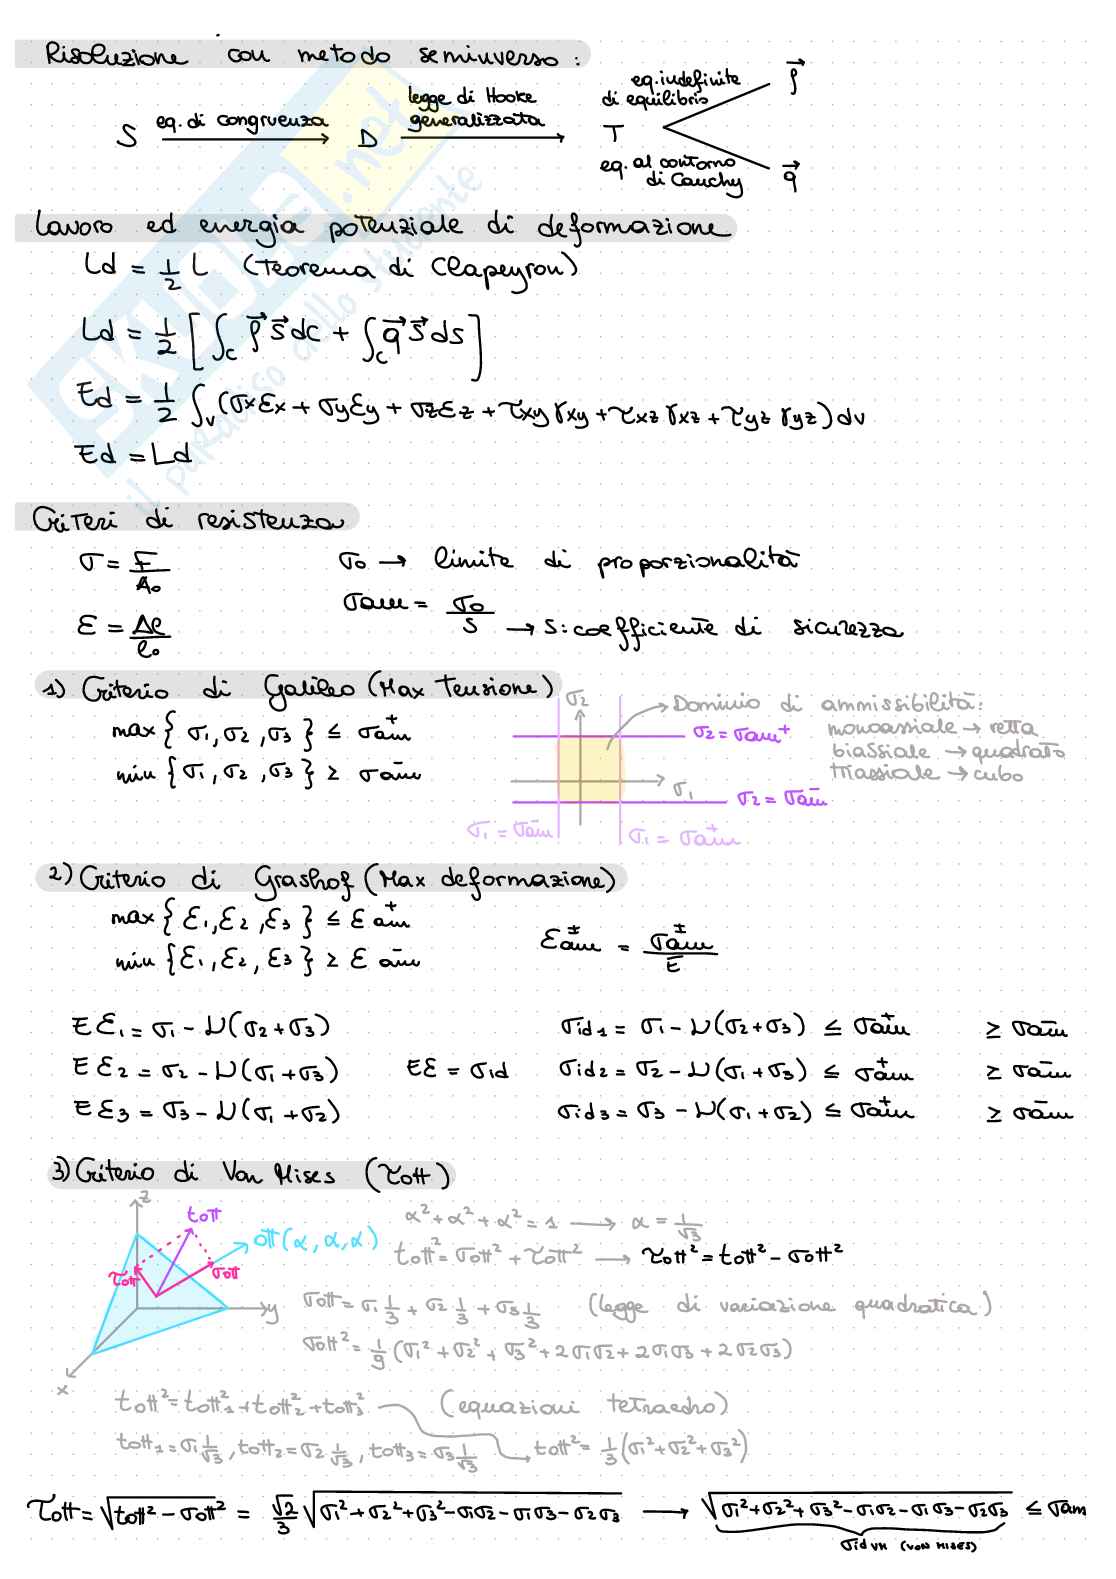 Risoluzione con metodo seminverso:
S eq. di congruenza D legge di Hooke generalizzata T eq. indefinite di equilibrio f⃗
eq. al contorno di Cauchy q⃗
Lavoro ed energia potenziale di deformazione
Ld = 1/2 L (Teorema di Clapeyron)
Ld = 1/2 [∫c f⃗ s⃗ dc + ∫c q⃗ s⃗ ds]
Ed = 1/2 ∫v (σxεx + σyεy + σzεz + τxy γxy + τxz γxz + τyz γyz) dv
Ed = Ld
Criteri di resistenza
σ = F/A₀ σ₀ → limite di proporzionalità
ε = Δl/l₀ σam = σ₀/s → s: coefficiente di sicurezza
1) Criterio di Galileo (Max Tensione)
max{σ₁, σ₂, σ₃} ≤ σam⁺
min{σ₁, σ₂, σ₃} ≥ σam⁻
σ₂
σ₁
σ₂ = σam⁺
σ₂ = σam⁻
σ₁ = σam⁻
σ₁ = σam⁺
Dominio di ammissibilità:
monoassiale → retta
biassiale → quadrato
triassiale → cubo
2) Criterio di Grashof (Max deformazione)
max{ε₁, ε₂, ε₃} ≤ εam⁺
min{ε₁, ε₂, ε₃} ≥ εam⁻
εam± = σam±/E
Eε₁ = σ₁ - ν(σ₂+σ₃) σid₁ = σ₁ - ν(σ₂+σ₃) ≤ σam⁺ ≥ σam⁻
Eε₂ = σ₂ - ν(σ₁+σ₃) Eε = σid σid₂ = σ₂ - ν(σ₁+σ₃) ≤ σam⁺ ≥ σam⁻
Eε₃ = σ₃ - ν(σ₁+σ₂) σid₃ = σ₃ - ν(σ₁+σ₂) ≤ σam⁺ ≥ σam⁻
3) Criterio di Von Mises (τott)
z
tott
ott(α, α, α)
τott
σott
y
x
α² + α² + α² = 1 → α = 1/√3
tott² = σott² + τott² → τott² = tott² - σott²
σott = σ₁ 1/3 + σ₂ 1/3 + σ₃ 1/3 (legge di variazione quadratica)
σott² = 1/9 (σ₁² + σ₂² + σ₃² + 2σ₁σ₂ + 2σ₁σ₃ + 2σ₂σ₃)
tott² = tott₁² + tott₂² + tott₃² (equazioni tetraedro)
tott₁ = σ₁ 1/√3, tott₂ = σ₂ 1/√3, tott₃ = σ₃ 1/√3 → tott² = 1/3 (σ₁² + σ₂² + σ₃²)
τott = √(tott² - σott²) = √2/3 √(σ₁² + σ₂² + σ₃² - σ₁σ₂ - σ₁σ₃ - σ₂σ₃) → √(σ₁² + σ₂² + σ₃² - σ₁σ₂ - σ₁σ₃ - σ₂σ₃) ≤ σam
σid VM (VON MISES)
SKUOLA.net
il paradiso dello studente